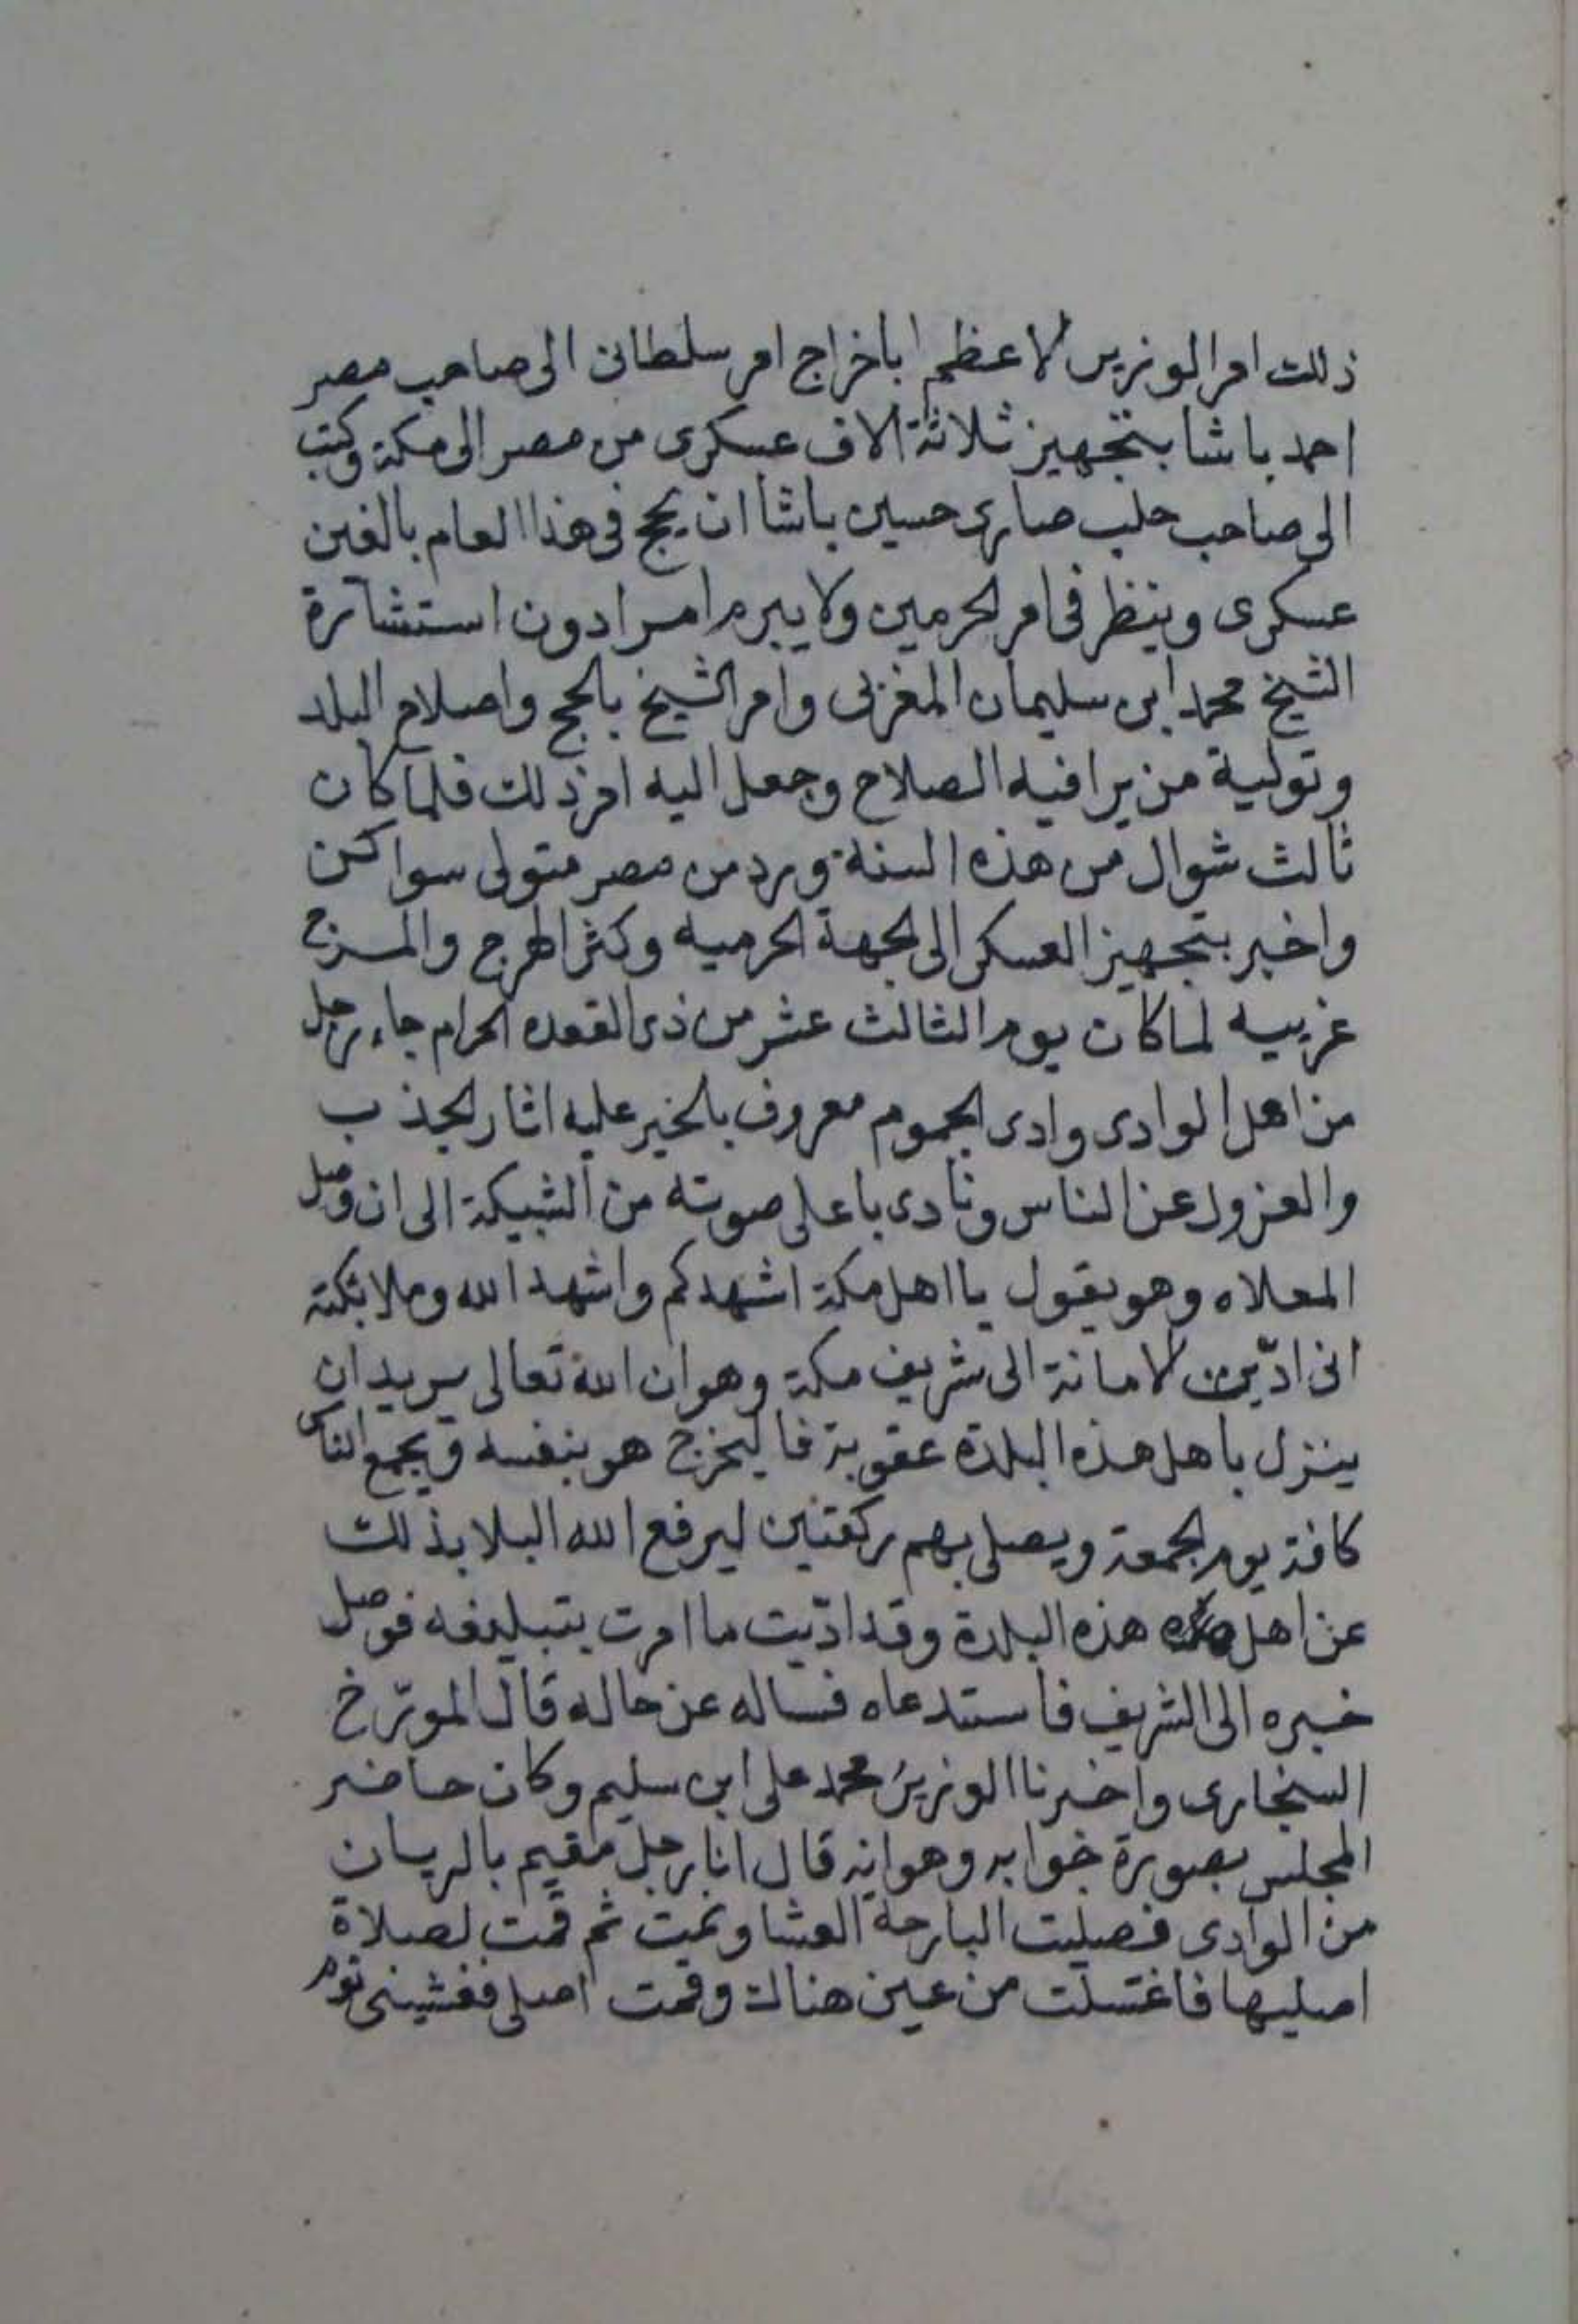 ذلك امر الوزير الاعظم باخراج امر سلطانى الى صاحب مصر
احمد باشا بتجهيز ثلاثة الاف عسكرى من مصر الى مكة وكتب
الى صاحب حلب صارى حسين باشا ان يحج فى هذا العام بالفين
عسكرى وينظر فى امر الحرمين ولا يبرم امرا دون استشارة
الشيخ محمد ابن سليمان المغربى وامر الشيخ بالحج واصلاح البلد
وتولية من يرا فيه الصلاح وجعل اليه امر ذلك فلما كان
ثالث شوال من هذه السنة ورد من مصر متولى سواكن
واخبر بتجهيز العسكر الى الجهة الحرميه وكثر الهرج والمرج
غريبه لما كان يوم الثالث عشر من ذى القعده الحرام جاء رجل
من اهل الوادى وادى الجموم معروف بالخير عليه اثار الجذب
والعزول عن الناس ونادى باعلى صوته من الشبيكة الى ان وصل
المعلاه وهو يقول يا اهل مكة اشهدكم واشهد الله وملائكته
انى ادّيت الامانة الى شريف مكة وهو ان الله تعالى يريد ان
ينزل باهل هذه البلدة عقوبة فاليخرج هو بنفسه ويجمع الناس
كافة يوم الجمعة ويصلى بهم ركعتين ليرفع الله البلا بذلك
عن اهل هذه البلدة وقد ادّيت ما امرت بتبليغه فوصل
خبره الى الشريف فاستدعاه فساله عن حاله قال المورّخ
السنجارى واخبرنا الوزير محمد على ابن سليم وكان حاضر
المجلس بصورة خوابه وهو انه قال انا رجل مقيم بالريان
من الوادى فصليت البارحة العشا ونمت ثم قمت لصلاة
اصليها فاغتسلت من عين هناك وقمت اصلى فغشينى نوم